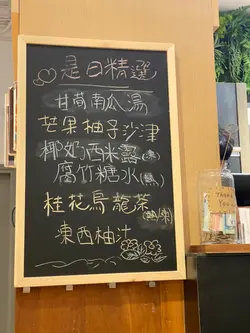 是日精選
甘筍南瓜湯
芒果柚子沙津
椰奶西米露(凍)
腐竹糖水(熱)
桂花烏龍茶(熱/凍)
凍西柚汁
THANK
YOU